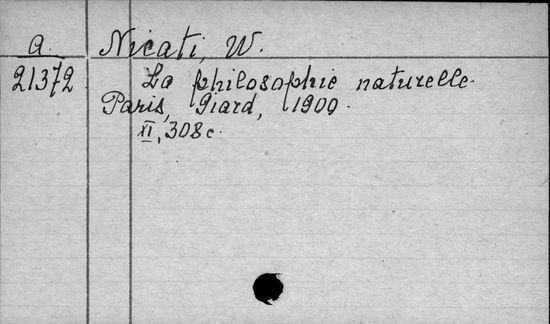 A. Nicati, W.
21372 La philosophie naturelle.
Paris, Giard, 1900.
XI, 308 c.